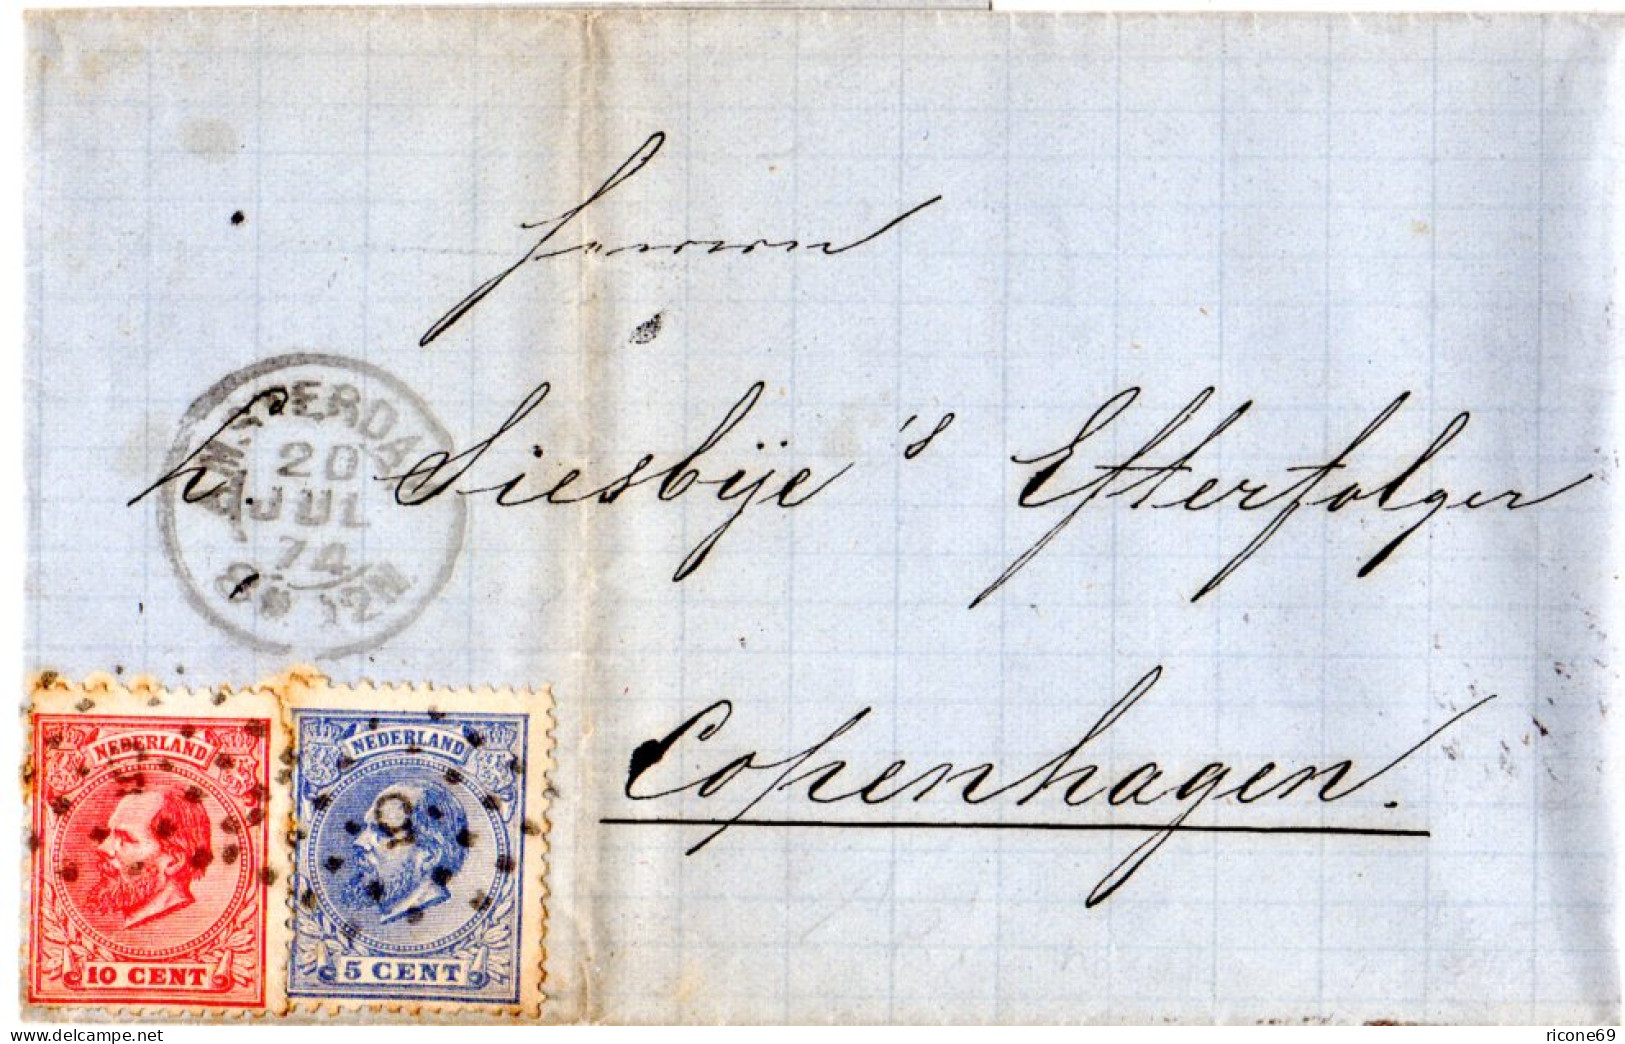 Herren
AMSTERDAM
20
JUL
74
8
12N
L. Siesbÿe's Efterfolger
Copenhagen.
NEDERLAND
10 CENT
NEDERLAND
5 CENT
www.delcampe.net
ricone69